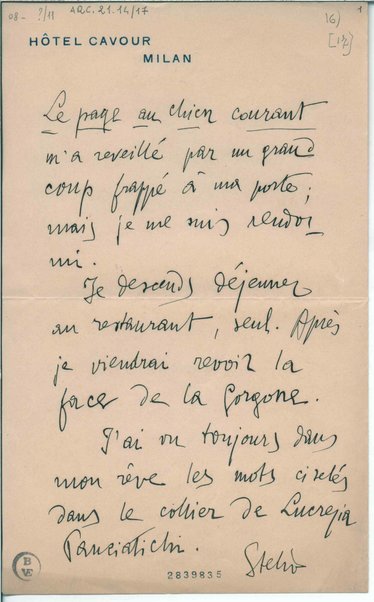 08- ?/11
ARC. 21.14/17
16)
1
[12]
HÔTEL CAVOUR
MILAN
Le page au chien courant
m'a reveillé par un grand
coup frappé à ma porte;
mais je me suis rendor
mi.
Je descends déjeuner
au restaurant, seul. Après
je viendrai revoir la
face de la Gorgone.
J'ai vu toujours dans
mon rêve les mots ciselés
dans le collier de Lucrezia
Panciatichi.
Stelio
BVE
2839835